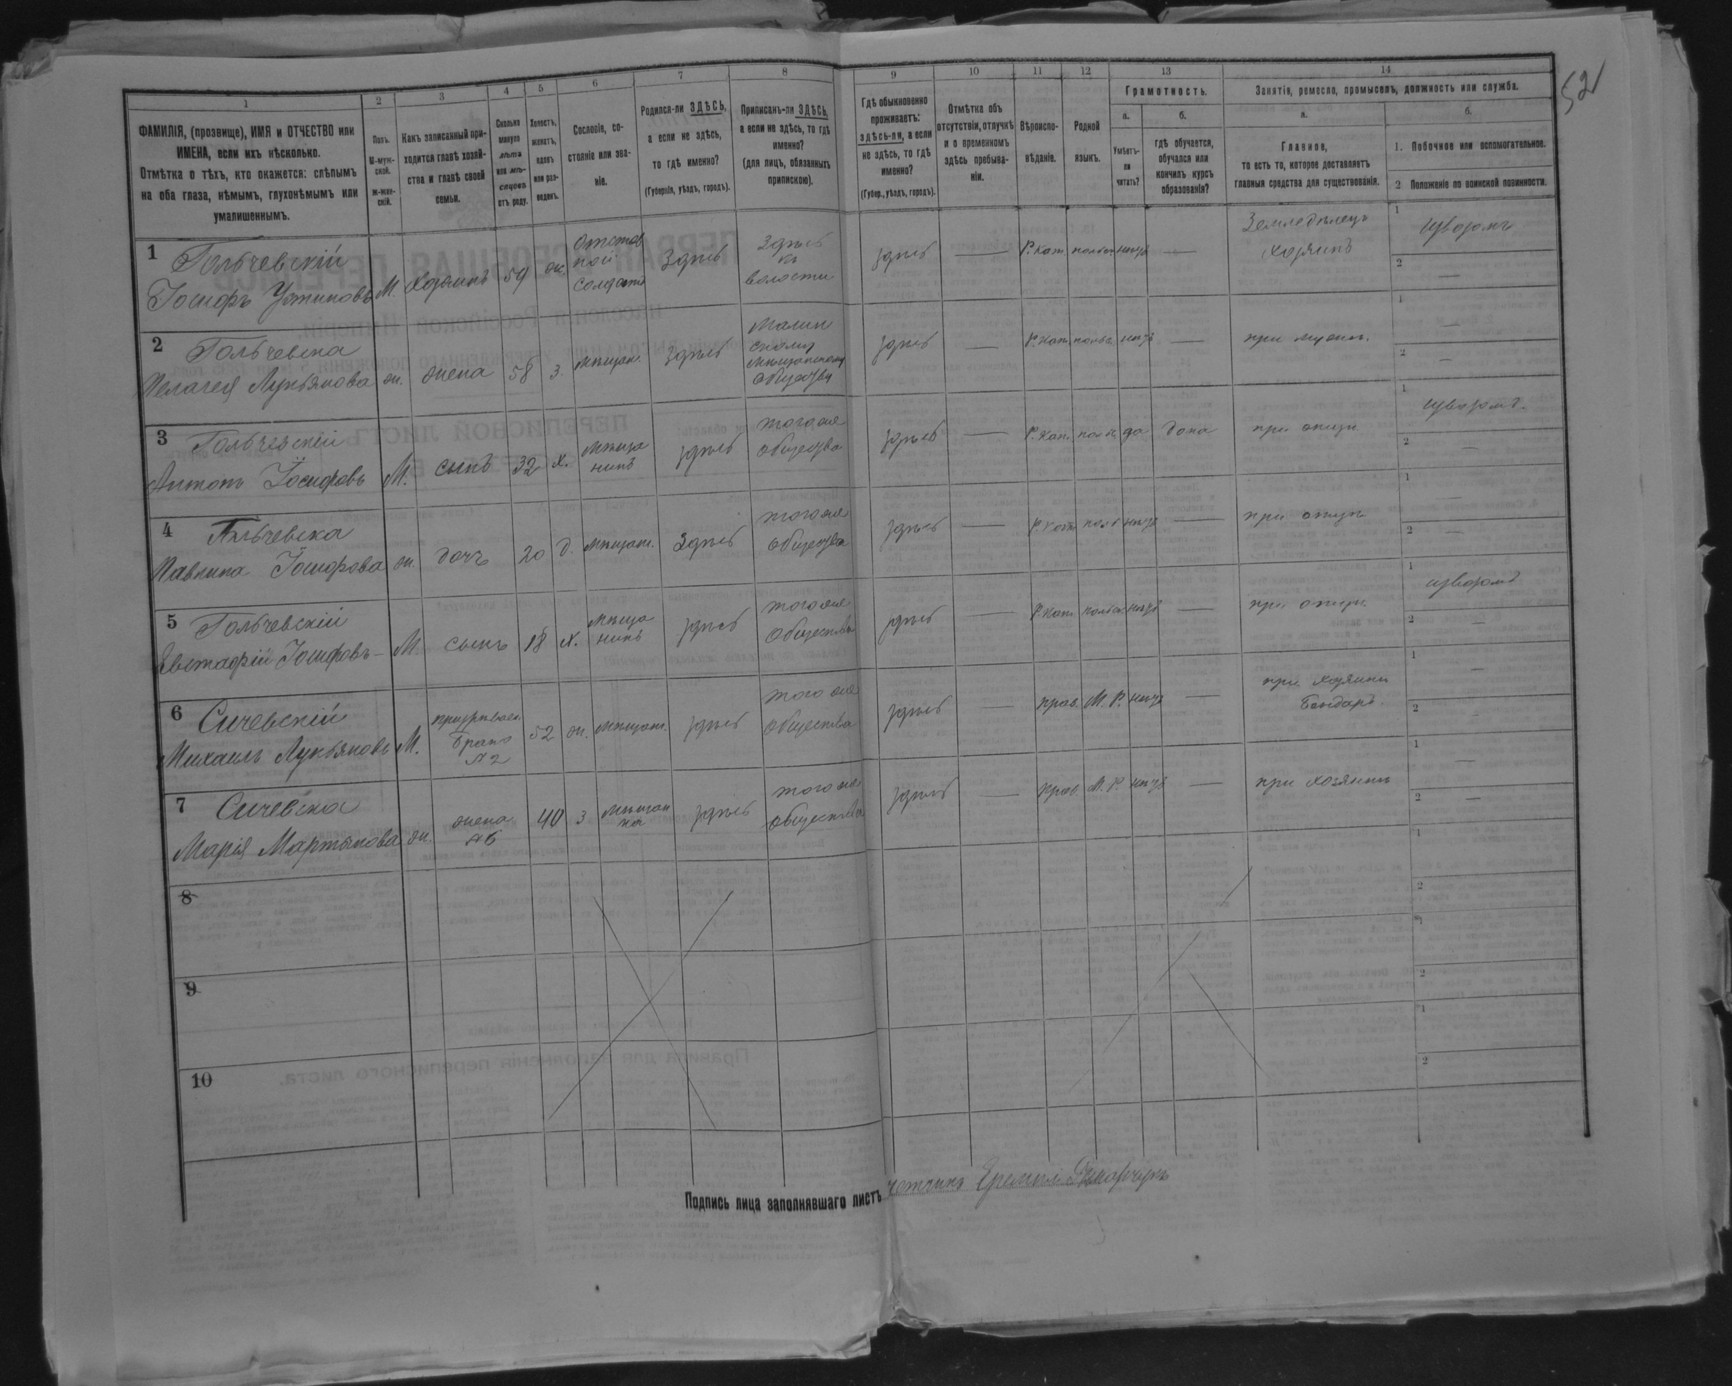 52
1 2 3 4 5 6 7 8 9 10 11 12 13 14
ФАМИЛІЯ, (прозвище), ИМЯ и ОТЧЕСТВО или
ИМЕНА, если ихъ нѣсколько.
Отмѣтка о тѣхъ, кто окажется: слѣпымъ
на оба глаза, нѣмымъ, глухонѣмымъ или
умалишеннымъ.
Полъ.
М-муж-
ской.
Ж-жен-
скій.
Какъ записанный при-
ходится главѣ хозяй-
ства и главѣ своей
семьи.
Сколько
минуло
лѣтъ
или мѣ-
сяцевъ
отъ роду.
Холостъ,
женатъ,
вдовъ
или раз-
веденъ.
Сословіе, со-
стояніе или зва-
ніе.
Родился-ли ЗДѢСЬ,
а если не здѣсь,
то гдѣ именно?
(Губернія, уѣздъ, городъ).
Приписанъ-ли ЗДѢСЬ,
а если не здѣсь, то гдѣ
именно?
(для лицъ, обязанныхъ
припискою).
Гдѣ обыкновенно
проживаетъ:
здѣсь-ли, а если
не здѣсь, то гдѣ
именно?
(Губер., уѣздъ, городъ).
Отмѣтка объ
отсутствіи, отлучкѣ
и о временномъ
здѣсь пребыва-
ніи.
Вѣроиспо-
вѣданіе.
Родной
языкъ.
Грамотность.
а.
Умѣетъ-
ли
читать?
б.
гдѣ обучается,
обучался или
кончилъ курсъ
образованія?
Занятія, ремесло, промыселъ, должность или служба.
а.
Главное,
то есть то, которое доставляетъ
главныя средства для существованія.
б.
1. Побочное или вспомогательное.
2 Положеніе по воинской повинности.
1 Гольчевскій
Іосифъ Устиновъ М. Хозяинъ 59 ж. Отстав
ной
солдатъ Здѣсь Здѣсь
къ
волости здѣсь Р. Кат. польск. нѣтъ — Земледѣлецъ
хозяинъ 1 извозомъ
2 —
2 Гольчевска
Пелагея Лукьянова ж. жена 58 з. мѣщан. здѣсь
мѣщанскому
обществу здѣсь — Р. Кат. польс. нѣтъ — при мужѣ. 1 —
2 —
3 Гольчевскій
Антонъ Іосифовъ М. сынъ 32 х. мѣща
нинъ здѣсь того же
общества здѣсь — Р. Кат. польс. да дома при отцѣ 1 извозомъ.
2 —
4 Гольчевска
Павлина Іосифова ж. дочь 20 д. мѣщан. Здѣсь того же
общества здѣсь — Р. Кат. польс нѣтъ — при отцѣ 1 —
2 —
5 Гольчевскій
Евстафій Іосифовъ М. сынъ 18 х. мѣща
нинъ здѣсь того же
общества здѣсь — Р. Кат. польск. нѣтъ — при отцѣ 1 извозомъ
2 —
6 Сичевскій
Михаилъ Лукьяновъ М.
братъ
№2 52 ж. мѣщан. здѣсь того же
общества здѣсь — прав. М. Р. нѣтъ — при хозяинѣ
Бондарь 1 —
2 —
7 Сичевска
Марія Мартынова ж. жена
№6 40 з мѣщан
ка здѣсь того же
общества здѣсь — прав. М. Р. нѣтъ — при хозяинѣ 1 —
2 —
8 1
2
9 1
2
10 1
2
Подпись лица заполнявшаго листъ